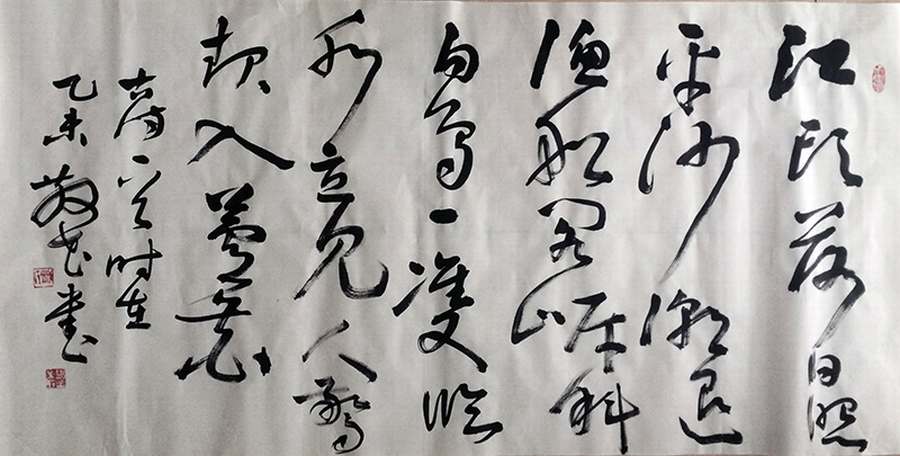 江頭落日照
平沙潮退
漁船閣岸斜
白鳥一雙臨
水立見人驚
却入蘆花
古詩一首时在
乙未